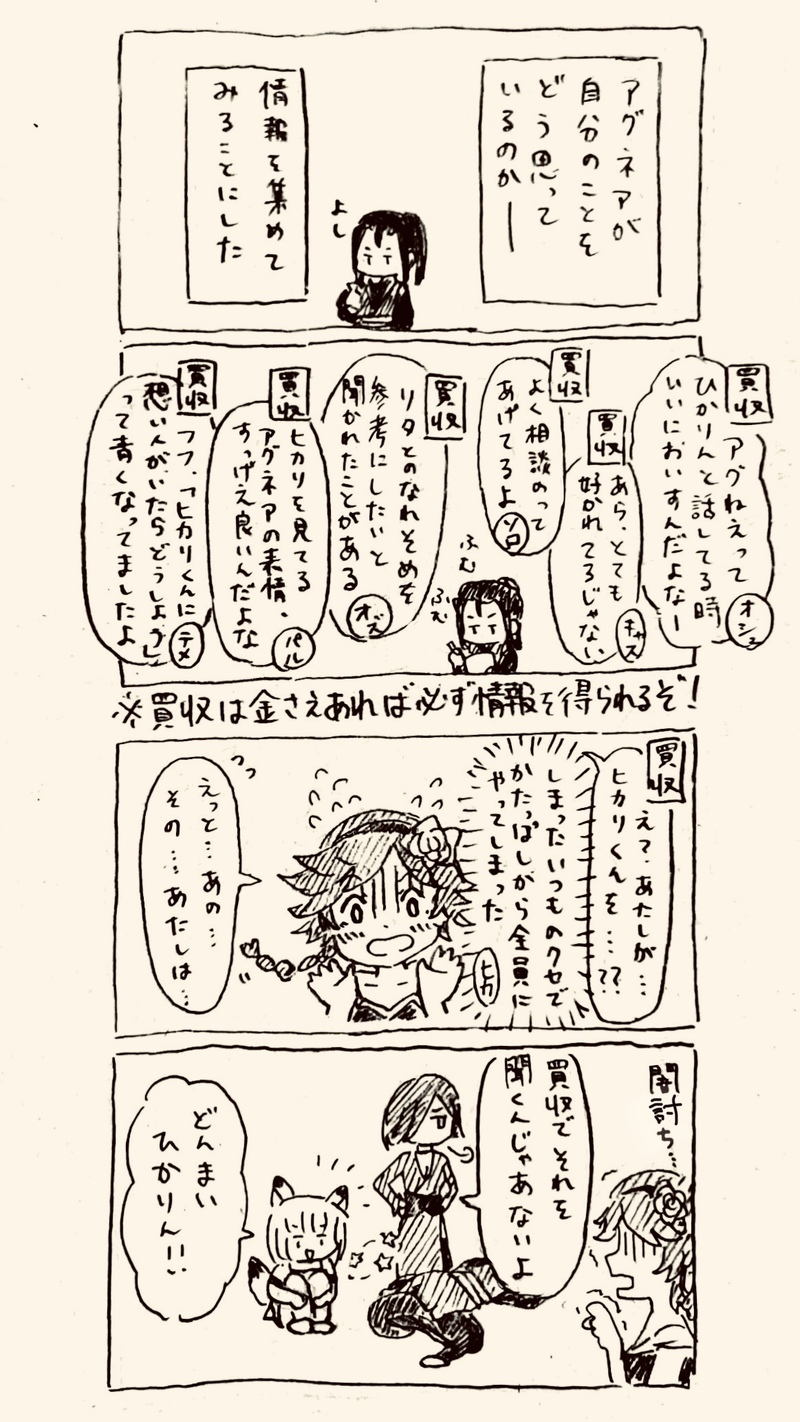 アグネアが
自分のことを
どう思って
いるのか―
よし
情報を集めて
みることにした
買収
アグねえって
ひかりんと話してる時
いいにおいすんだよなー
オシュ
買収
あら、とても
好かれてるじゃない
キャス
買収
よく相談のって
あげてるよ
ソロ
ふむ
ふむ
買収
リタとのなれそめを
参考にしたいと
聞かれたことがある
オズ
買収
ヒカリを見てる
アグネアの表情、
すっげえ良いんだよな
パル
買収
フフ、「ヒカリくんに
想い人がいたらどうしよう」
って青くなってましたよ
テメ
※買収は金さえあれば必ず情報を得られるぞ!
買収
えっ、あたしが…
ヒカリくんを…??
しまったいつものクセで
かたっぱしから全員に
やってしまった
ヒカ
えっと…あの…
その…あたしは…
闇討ち…
買収でそれを
聞くんじゃあないよ
どんまい
ひかりん!!